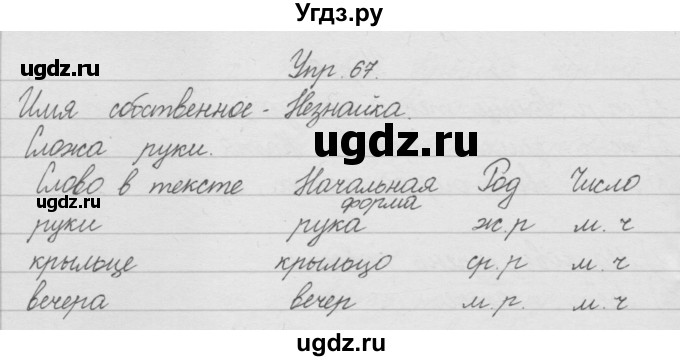 Угдз.ру
ugdz.ru ugdz.ru
Упр. 67.
Имя собственное - Незнайка.
Сложа руки.
ugdz.ru
Слово в тексте Начальная форма Род Число
руки рука ж.р м.ч
ugdz.ru ugdz.ru
крыльце крыльцо ср.р м.ч
вечера вечер м.р. м.ч
ugdz.ru